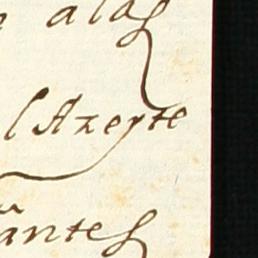 alas
l Azeyte
antes